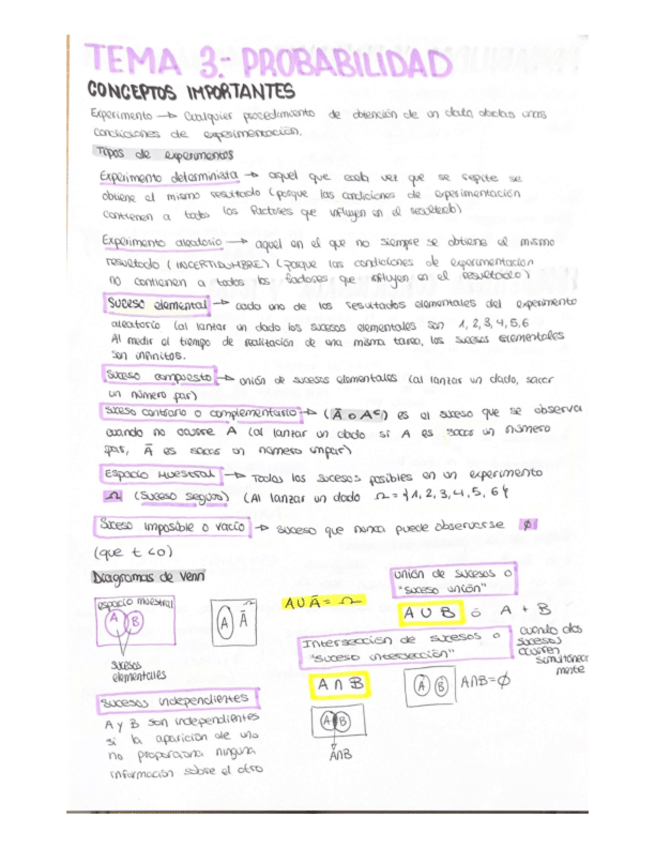 TEMA 3.- PROBABILIDAD
CONCEPTOS IMPORTANTES
Experimento → Cualquier procedimiento de obtención de un dato, dadas unas
condiciones de experimentación.
Tipos de experimentos
Experimento determinista → aquel que cada vez que se repite se
obtiene el mismo resultado (porque las condiciones de experimentación
contienen a todos los factores que influyen en el resultado)
Experimento aleatorio → aquel en el que no siempre se obtiene el mismo
resultado (INCERTIDUMBRE) (porque las condiciones de experimentación
no contienen a todos los factores que influyen en el resultado)
Suceso elemental → cada uno de los resultados elementales del experimento
aleatorio (al lanzar un dado los sucesos elementales son 1, 2, 3, 4, 5, 6
Al medir el tiempo de realización de una misma tarea, los sucesos elementales
son infinitos.
Suceso compuesto → unión de sucesos elementales (al lanzar un dado, sacar
un número par)
Suceso contrario o complementario → (Ā o Aᶜ) es el suceso que se observa
cuando no ocurre A (al lanzar un dado si A es sacar un número
par, Ā es sacar un número impar)
Espacio Muestral → Todos los sucesos posibles en un experimento
Ω (Suceso seguro) (Al lanzar un dado Ω = {1, 2, 3, 4, 5, 6}
Suceso imposible o vacío → suceso que nunca puede observarse ∅
(que t <0)
Diagramas de Venn
espacio muestral
A B
sucesos
elementales
Ω
A Ā
A∪Ā = Ω
Unión de sucesos o
"suceso unión"
A ∪ B ó A + B
Intersección de sucesos o
"suceso intersección"
cuando dos
sucesos
ocurren
simultánea
mente
A ∩ B
A B
A∩B=∅
A B
A∩B
Sucesos independientes
A y B son independientes
si la aparición de uno
no proporciona ninguna
información sobre el otro